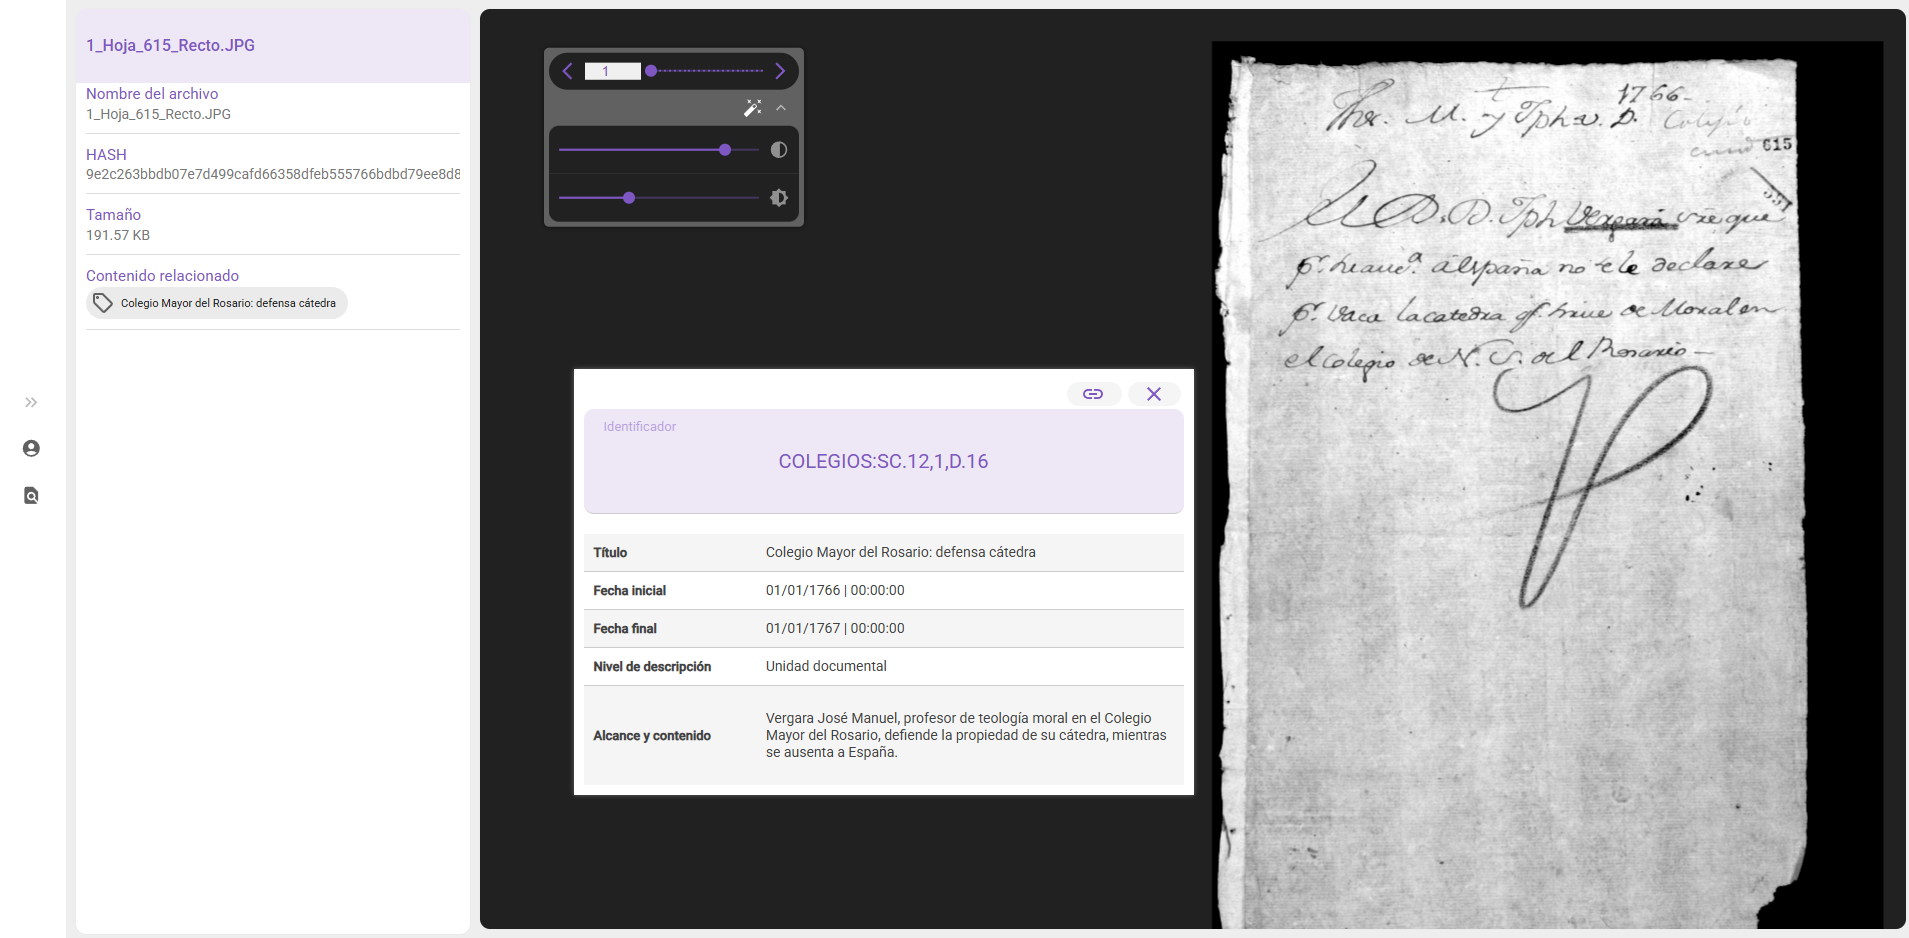 1_Hoja_615_Recto.JPG
Nombre del archivo
1_Hoja_615_Recto.JPG
HASH
9e2c263bbdb07e7d499cafd66358dfeb555766bdbd79ee8d8
Tamaño
191.57 KB
Contenido relacionado
Colegio Mayor del Rosario: defensa cátedra
1
Identificador
COLEGIOS:SC.12,1,D.16
Título Colegio Mayor del Rosario: defensa cátedra
Fecha inicial 01/01/1766 | 00:00:00
Fecha final 01/01/1767 | 00:00:00
Nivel de descripción Unidad documental
Alcance y contenido
Vergara José Manuel, profesor de teología moral en el Colegio
Mayor del Rosario, defiende la propiedad de su cátedra, mientras
se ausenta a España.
1766
M. y Tph
615
El D. D. Tph Vergara que
a España no se le declare
pr. vaca la catedra de Moral en
el colegio de N. S. del Rosario